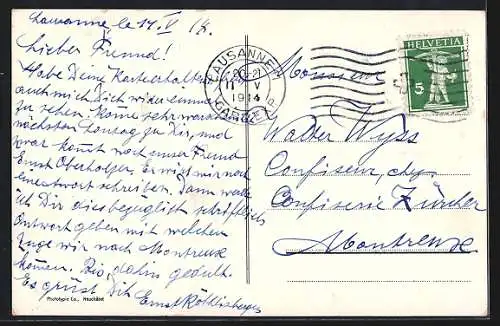 Lausanne le 11. V 14.
Lieber Freund!
Habe Deine Karte erhalten
auch mich Dich wieder einmal
zu sehen. Kome sehr wahr
nächsten Sontag zu Dir, und
zwar kommt noch unser Freund
Ernst Oberholzer, er wird mir noch
eine Antwort schreiben. Dann werde
ich Dir diesbezüglich schriftlich
Antwort geben mit welchem
Zuge wir nach Montreux
kommen. Bis dahin geduld.
Es grüsst Dich Ernst Röthlisberger
Phototypie Co., Neuchâtel
LAUSANNE
20-21
11 V
1914
HELVETIA
5
Monsieur
Walter Wyss
Confiseur, chez
Confiserie Zürcher
Montreux